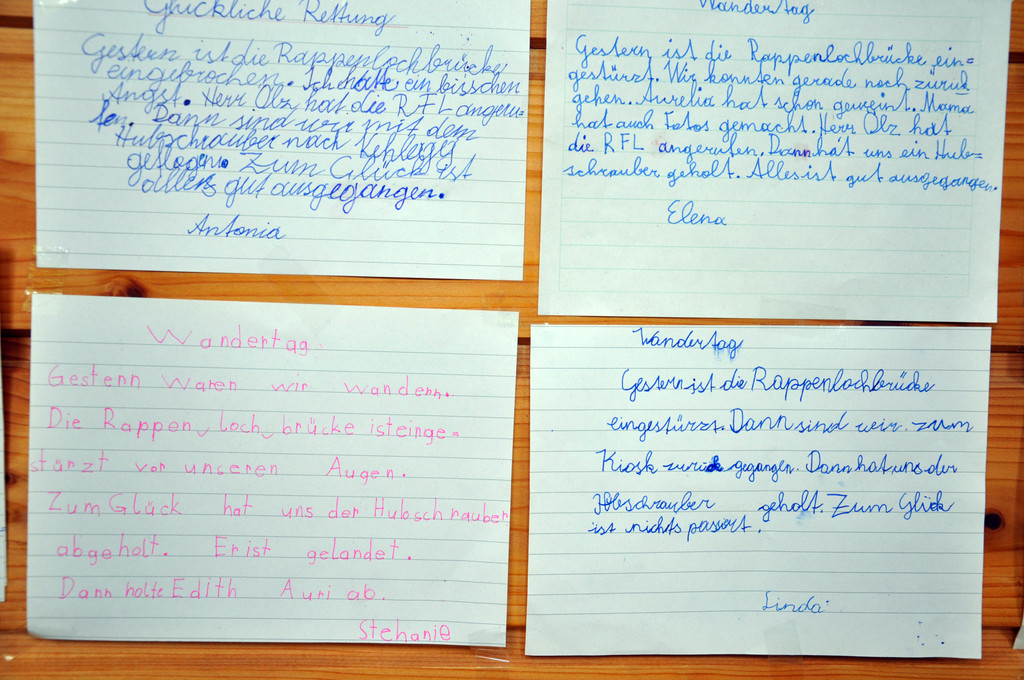 Glückliche Rettung
Gestern ist die Rappenlochbrücke
eingebrochen. Ich hatte ein bisschen
Angst. Herr Olz hat die RFL angeru-
fen. Dann sind wir mit dem
Hubschrauber nach Kehlegg
geflogen. Zum Glück ist
alles gut ausgegangen.
Antonia
Wandertag
Gestern ist die Rappenlochbrücke ein=
gestürzt. Wir konnten gerade noch zurück
gehen. Aurelia hat schon geweint. Mama
hat auch Fotos gemacht. Herr Olz hat
die RFL angerufen. Dann hat uns ein Hub=
schrauber geholt. Alles ist gut ausgegangen.
Elena
Wandertag.
Gestern waren wir wandern.
Die Rappen loch brücke ist einge=
stürzt vor unseren Augen.
Zum Glück hat uns der Hubschrauber
abgeholt. Er ist gelandet.
Dann holte Edith Auri ab.
Stehanie
Wandertag
Gestern ist die Rappenlochbrücke
eingestürzt. Dann sind wir zum
Kiosk zurück gegangen. Dann hat uns der
Hubschrauber geholt. Zum Glück
ist nichts passiert.
Linda